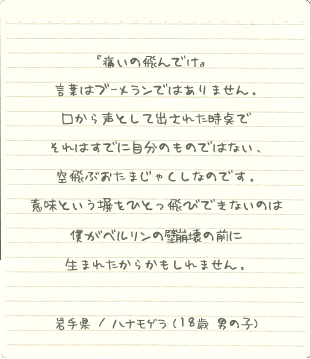 『痛いの飛んでけ』
言葉はブーメランではありません。
口から声として出された時点で
それはすでに自分のものではない、
空飛ぶおたまじゃくしなのです。
意味という塀をひとっ飛びできないのは
僕がベルリンの壁崩壊の前に
生まれたからかもしれません。
岩手県 / ハナモゲラ (18歳 男の子)